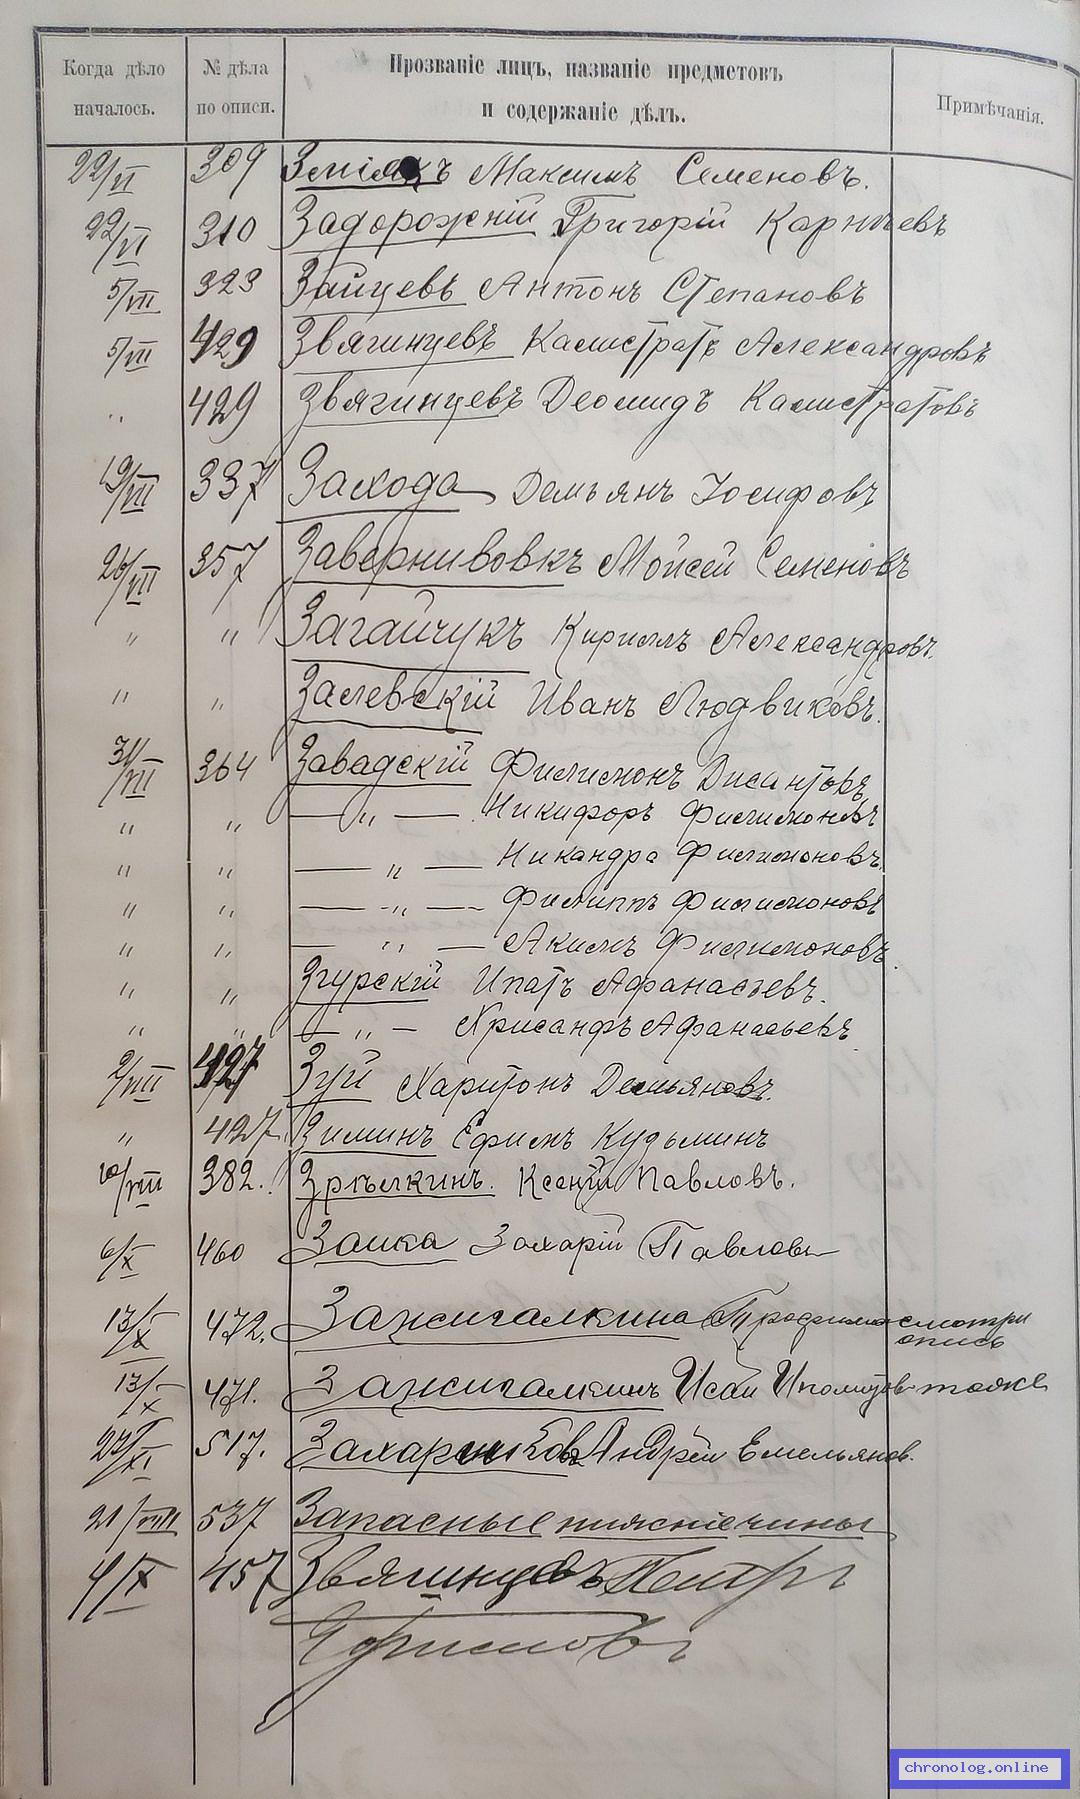 Когда дѣло началось.
№ дѣла по описи.
Прозваніе лицъ, названіе предметовъ
и содержаніе дѣлъ.
Примѣчанія.
22/VI 309 Зміякъ Максимъ Семеновъ.
22/VI 310 Задорожній Григорій Карнѣевъ
5/VII 323 Зайцевъ Антонъ Степановъ
5/VII 429 Звягинцевъ Калистратъ Александровъ
" 429 Звягинцевъ Деомидъ Калистратовъ
19/VII 337 Заход а Демьянъ Іосифовъ
26/VII 357 Завернивовкъ Мойсей Семеновъ
" " Загайчукъ Кириллъ Александровъ.
" " Залевскій Иванъ Людвиковъ.
31/VII 364 Завадскій Филимонъ
" " — " — Никифоръ Филимоновъ
" " — " — Никандра Филимоновъ.
" " — " — Филиппъ Филимоновъ
" " — " — Акимъ Филимоновъ.
" " Згурскій Ипатъ Афанасьевъ.
" " — " — Хрисанфъ Афанасьевъ
2/VIII 427 Зуй Харитонъ Демьяновъ.
" 427 Зиминъ Ефимъ Кузьминъ
10/VIII 382. Зрѣлкинъ. Ксеній Павловъ.
6/X 460 Заика Захарій Павловъ
13/X 472. Зажигалкина смотри
опись
13/X 471. Зажигалкинъ Исай тоже
517. Андрей Емельянов.
21/VIII 537 Запасные нижніе чины
4/X 457 Звягинцевъ Петръ
Ефимовъ
chronolog.online